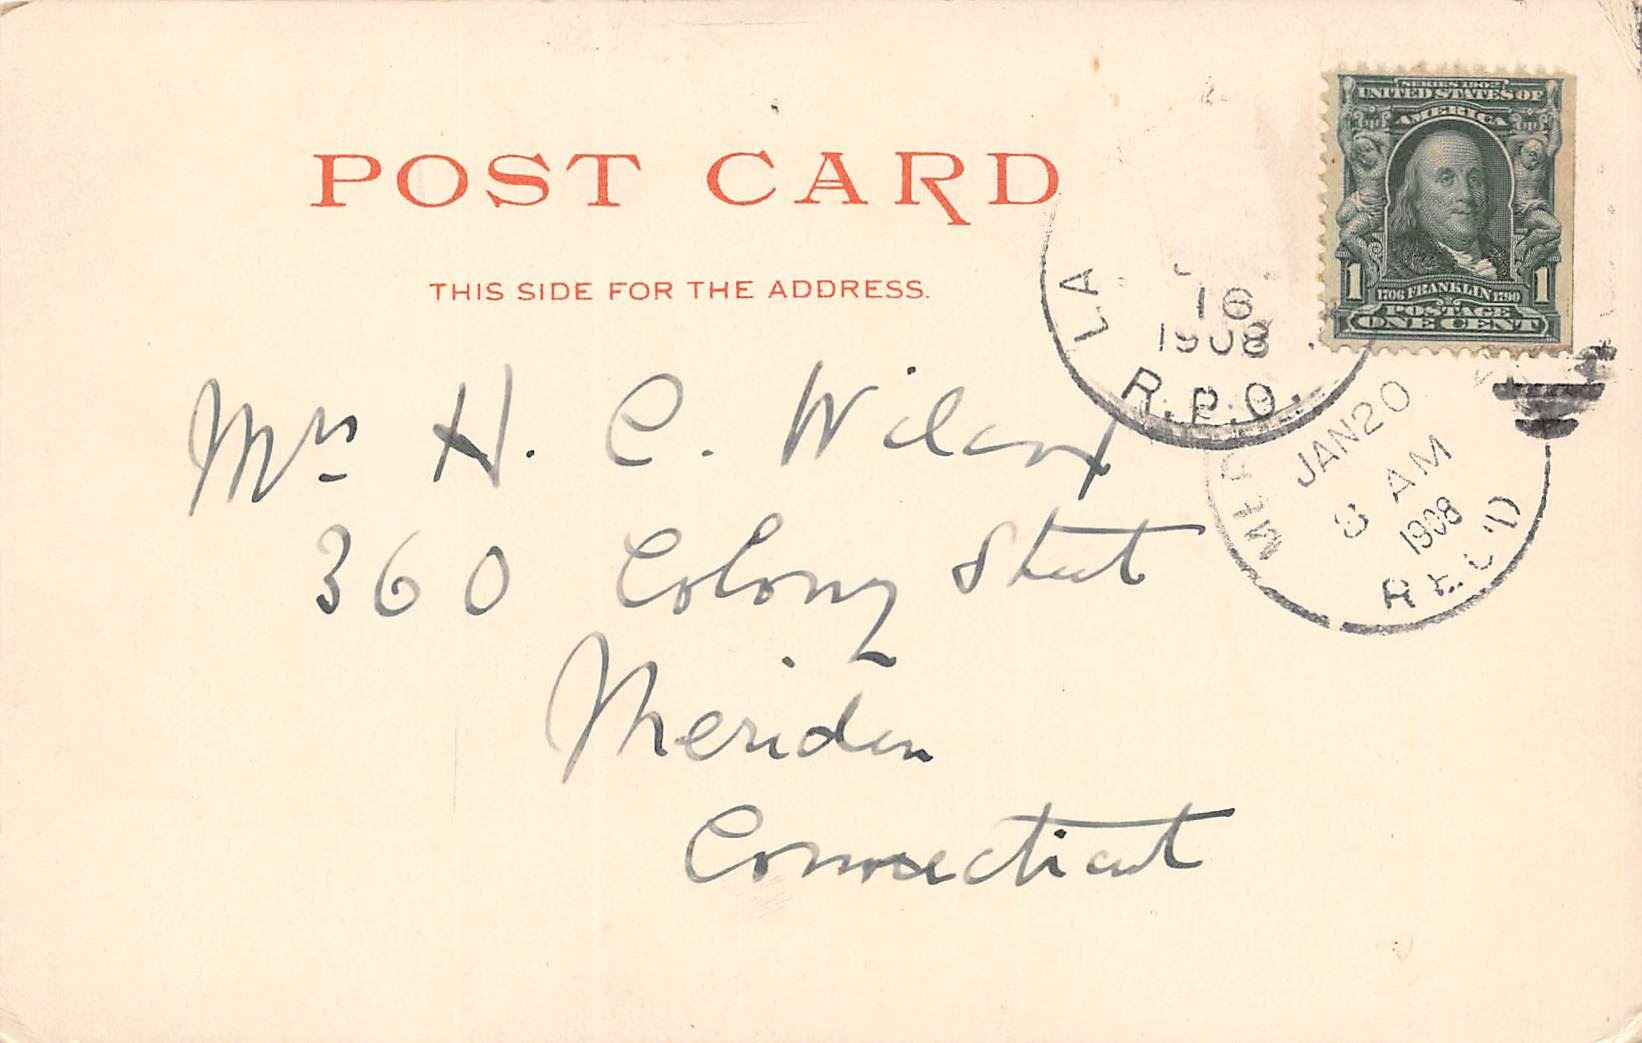 POST CARD
THIS SIDE FOR THE ADDRESS.
SERIES 1902
UNITED STATES OF
AMERICA
1 1706 FRANKLIN 1790 1
POSTAGE
ONE CENT
LA
16
1908
R.P.O.
JAN 20
8 AM
1908
REC'D
Mrs H. C. Wilcox
360 Colony Street
Meriden
Connecticut